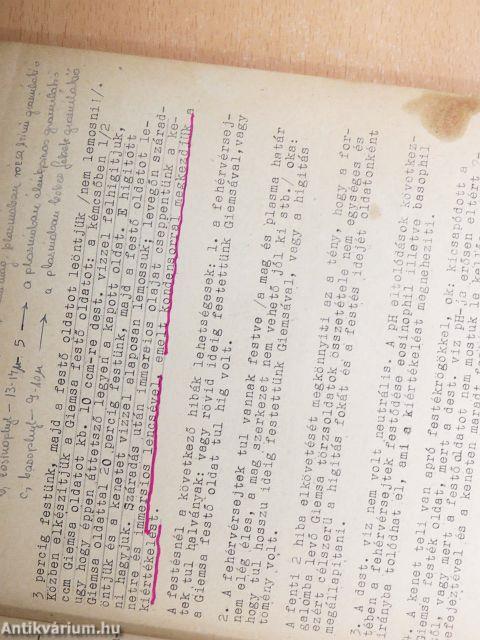 b, eozinophyl - 13-17μ - 5 → a plasmában
c, basophyl - 9-10μ → a plasmában
3 percig festünk, majd a festő oldatot leöntjük /nem lemosni!/.
Közben elkészítjük a Giemsa festő oldatot: a kémcsőben 1/2
ccm Giemsa oldatot kb. 10 ccm-re dest. vízzel felhigítjuk,
ugy hogy éppen áttetsző legyen a kapott oldat. E higított
Giemsa oldattal 20 percig festünk, majd a festő oldatot le-
öntjük és a kenetet vízzel alaposan lemossuk; levegőn szárad-
ni hagyjuk. Száradás után immersios olajat cseppentünk a ke-
netre és immersios lencsével, emelt kondensorral megkezdjük a
kiértékelést.
A festésnél a következő hibák lehetségesek: 1. a fehérvérsej-
tek tul halványak: vagy rövid ideig festettünk Giemsával, vagy
a Giemsa festő oldat tul híg volt.
2. A fehérvérsejtek tul vannak festve /a mag és plasma határ
nem elég éles, a mag szerkezet nem vehető jól ki stb./ oka:
hogy tul hosszu ideig festettünk Giemsával, vagy a higítás
tömény volt.
A fenti 2 hiba elkövetését megkönnyíti az a tény, hogy a for-
galomban levő Giemsa törzsoldatok összetétele nem egységes és
ezért célszerü a higítás fokát és a festés idejét oldatonként
megállapítani.
3. A dest. víz nem volt neutrális. A pH eltolódások következ-
tében a fehérvérsejtek festődése eosinophil illetve basophil
irányba tolódhat el, ami a kiértékelést megnehezíti.
A kenet teli van apró festékrögökkel, ok: kicsapódott a
Giemsa festék oldat, mert a dest. víz pH-ja erősen eltért
vagy mert a festő oldatot nem mostuk le
és a keneten maradt
Antikvárium.hu